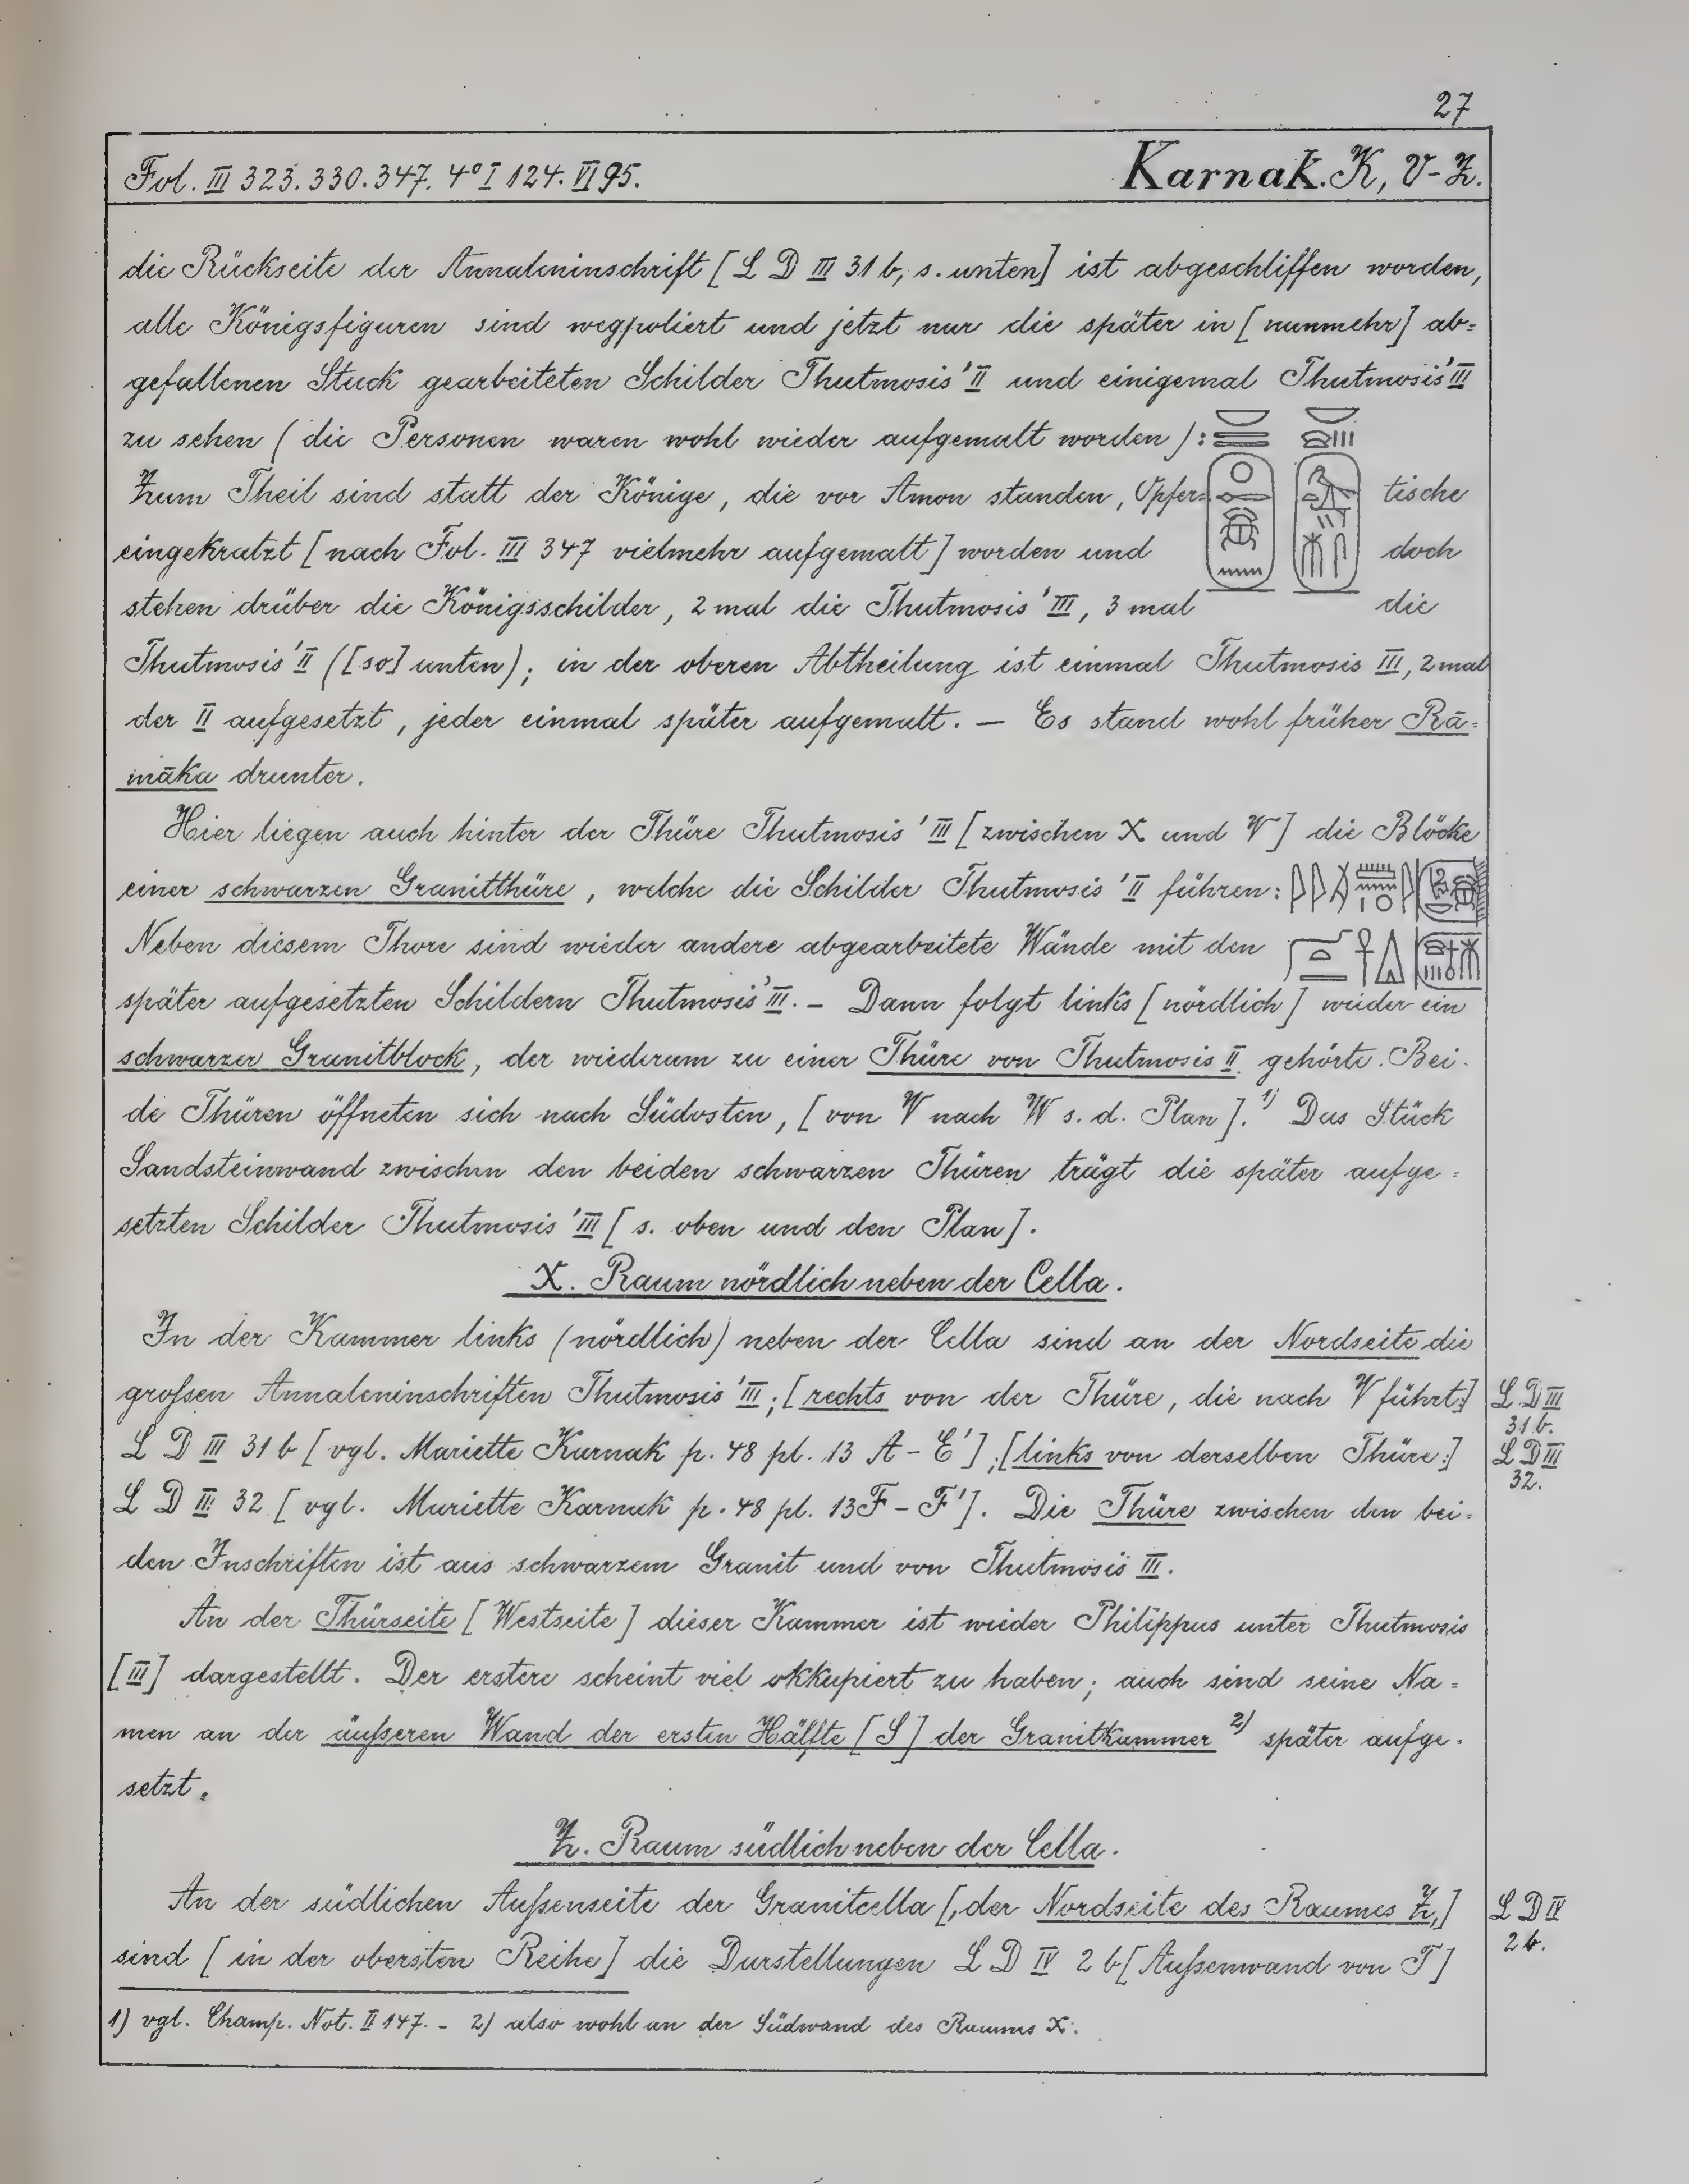 27
Fol. III 323. 330. 347. 4° I 124. VI 95.
Karnak. K, V-Z.
die Rückseite der Annaleninschrift [L D III 31 b, s. unten] ist abgeschliffen worden,
alle Königsfiguren sind wegpoliert und jetzt nur die später in [nunmehr] ab=
gefallenen Stuck gearbeiteten Schilder Thutmosis' II und einigemal Thutmosis' III
zu sehen (die Personen waren wohl wieder aufgemalt worden):
Zum Theil sind statt der Könige, die vor Amon standen, Opfer= tische
eingekratzt [nach Fol. III 347 vielmehr aufgemalt] worden und doch
stehen drüber die Königsschilder, 2 mal die Thutmosis' III, 3 mal die
Thutmosis' II ([so] unten); in der oberen Abtheilung ist einmal Thutmosis III, 2 mal
der II aufgesetzt, jeder einmal später aufgemalt. — Es stand wohl früher Rā=
māka drunter.
Hier liegen auch hinter der Thüre Thutmosis' III [zwischen X und V] die Blöcke
einer schwarzen Granitthüre, welche die Schilder Thutmosis' II führen:
Neben diesem Thore sind wieder andere abgearbeitete Wände mit den
später aufgesetzten Schildern Thutmosis' III. — Dann folgt links [nördlich] wieder ein
schwarzer Granitblock, der wiederum zu einer Thüre von Thutmosis II. gehörte. Bei-
de Thüren öffneten sich nach Südosten, [von V nach W s. d. Plan]. 1) Das Stück
Sandsteinwand zwischen den beiden schwarzen Thüren trägt die später aufge=
setzten Schilder Thutmosis' III [s. oben und den Plan].
X. Raum nördlich neben der Cella.
In der Kammer links (nördlich) neben der Cella sind an der Nordseite die
großen Annaleninschriften Thutmosis' III; [rechts von der Thüre, die nach V führt:]
L D III 31 b.
L D III 31 b [vgl. Mariette Karnak p. 48 pl. 13 A - E']; [links von derselben Thüre:]
L D III 32.
L D III 32 [vgl. Mariette Karnak p. 48 pl. 13 F - F']. Die Thüre zwischen den bei=
den Inschriften ist aus schwarzem Granit und von Thutmosis III.
An der Thürseite [Westseite] dieser Kammer ist wieder Philippus unter Thutmosis
[III] dargestellt. Der erstere scheint viel okkupiert zu haben; auch sind seine Na=
men an der äußeren Wand der ersten Hälfte [S] der Granitkammer 2) später aufge=
setzt.
Z. Raum südlich neben der Cella.
An der südlichen Außenseite der Granitcella [, der Nordseite des Raumes Z,]
L D IV 2 b.
sind [in der obersten Reihe] die Darstellungen L D IV 2 b [Außenwand von T]
1) vgl. Champ. Not. II 147. — 2) also wohl an der Südwand des Raumes X.